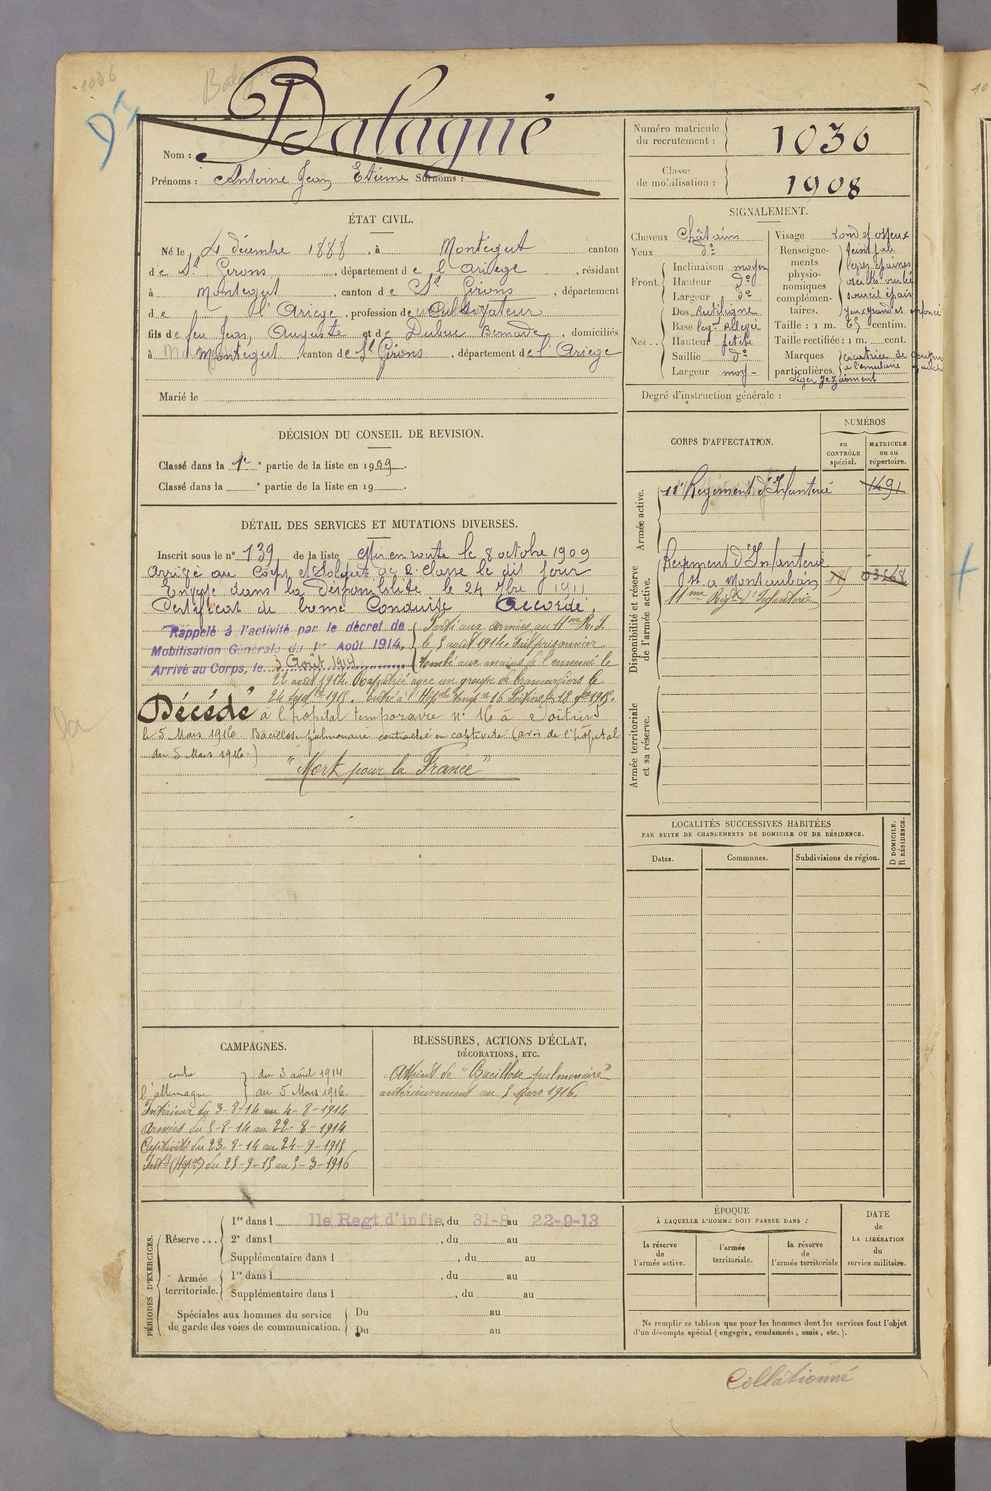 1036
Balagué
Nom : Balagué
Prénoms : Antoine Jean Etienne Surnoms :
Numéro matricule
du recrutement : 1036
Classe
de mobilisation : 1908
ÉTAT CIVIL.
Né le 4 décembre 1888, à Montégut canton
de St Girons, département de l'Ariège, résidant
à Montégut, canton de St Girons, département
de l'Ariège, profession de Cultivateur
fils de feu Jean, Auguste et de Dubuc Bernade, domiciliés
à Montégut canton de St Girons, département de l'Ariège
Marié le
SIGNALEMENT.
Cheveux Châtain
Yeux do
Front. Inclinaison moyen
Hauteur do
Largeur do
Nez... Dos Rectiligne
Base
Hauteur petite
Saillie do
Largeur moy-
Visage rond et osseux
Renseignements
physionomiques
complémentaires.
lèvres épaisses
sourcil épais
Taille : 1 m. 65 centim.
Taille rectifiée : 1 m. cent.
Marques
particulières. cicatrice de
à l'annulaire
Degré d'instruction générale :
DÉCISION DU CONSEIL DE REVISION.
Classé dans la 1re partie de la liste en 1909.
Classé dans la e partie de la liste en 19
DÉTAIL DES SERVICES ET MUTATIONS DIVERSES.
Inscrit sous le n° 139 de la liste Mis en route le 8 octobre 1909
Arrivé au Corps et Soldat de 2e classe le dit jour
Envoyé dans la disponibilité le 24 7bre 1911
Certificat de bonne Conduite Accordé.
Rappelé à l'activité par le décret de
Mobilisation Générale du 1er Août 1914.
Arrivé au Corps, le 3 Août 1914
Parti aux armées au 11me R.I.
le 5 août 1914. Fait prisonnier
Tombé aux mains de l'ennemi le
22 août 1914. Rapatrié avec un groupe de brancardiers le
24 Septbre 1915. Entré à l'Hôpal Temp. no 16 Poitiers le 18 9bre 1915.
Décédé à l'hôpital temporaire n° 16 à Poitiers
le 5 Mars 1916 Bacillose pulmonaire contractée en captivité (avis de l'hôpital
du 5 Mars 1916.)
"Mort pour la France"
CORPS D'AFFECTATION.
NUMÉROS
au
CONTRÔLE
spécial.
MATRICULE
ou au
répertoire.
Armée active.
11e Régiment d'Infanterie 1491
Disponibilité et réserve
de l'armée active.
Régiment d'Infanterie
à Montauban
11me Régt d'Infanterie
Armée territoriale
et sa réserve.
LOCALITÉS SUCCESSIVES HABITÉES
PAR SUITE DE CHANGEMENTS DE DOMICILE OU DE RÉSIDENCE.
Dates.
Communes.
Subdivisions de région.
D DOMICILE.
R RÉSIDENCE.
CAMPAGNES.
contre
l'allemagne
du 3 août 1914
au 5 Mars 1916.
Intérieur du 3-8-14 au 4-8-1914
Armées du 5-8-14 au 22-8-1914
Captivité du 23-8-14 au 24-9-1915
Intr (Hôpal) du 25-9-15 au 5-3-1916
BLESSURES, ACTIONS D'ÉCLAT,
DÉCORATIONS, ETC.
Atteint de "Bacillose pulmonaire"
antérieurement au 5 Mars 1916.
PÉRIODES D'EXERCICES.
Réserve... 1re dans l 11e Regt d'infie, du 31-8 au 22-9-13
2e dans l , du au
Supplémentaire dans l , du au
Armée
territoriale. 1re dans l , du au
Supplémentaire dans l , du au
Spéciales aux hommes du service
de garde des voies de communication. Du au
Du au
ÉPOQUE
À LAQUELLE L'HOMME DOIT PASSER DANS :
la réserve
de
l'armée active.
l'armée
territoriale.
la réserve
de
l'armée territoriale
DATE
de
LA LIBÉRATION
du
service militaire.
Ne remplir ce tableau que pour les hommes dont les services font l'objet
d'un décompte spécial (engagés, condamnés, omis, etc.).
Collationné